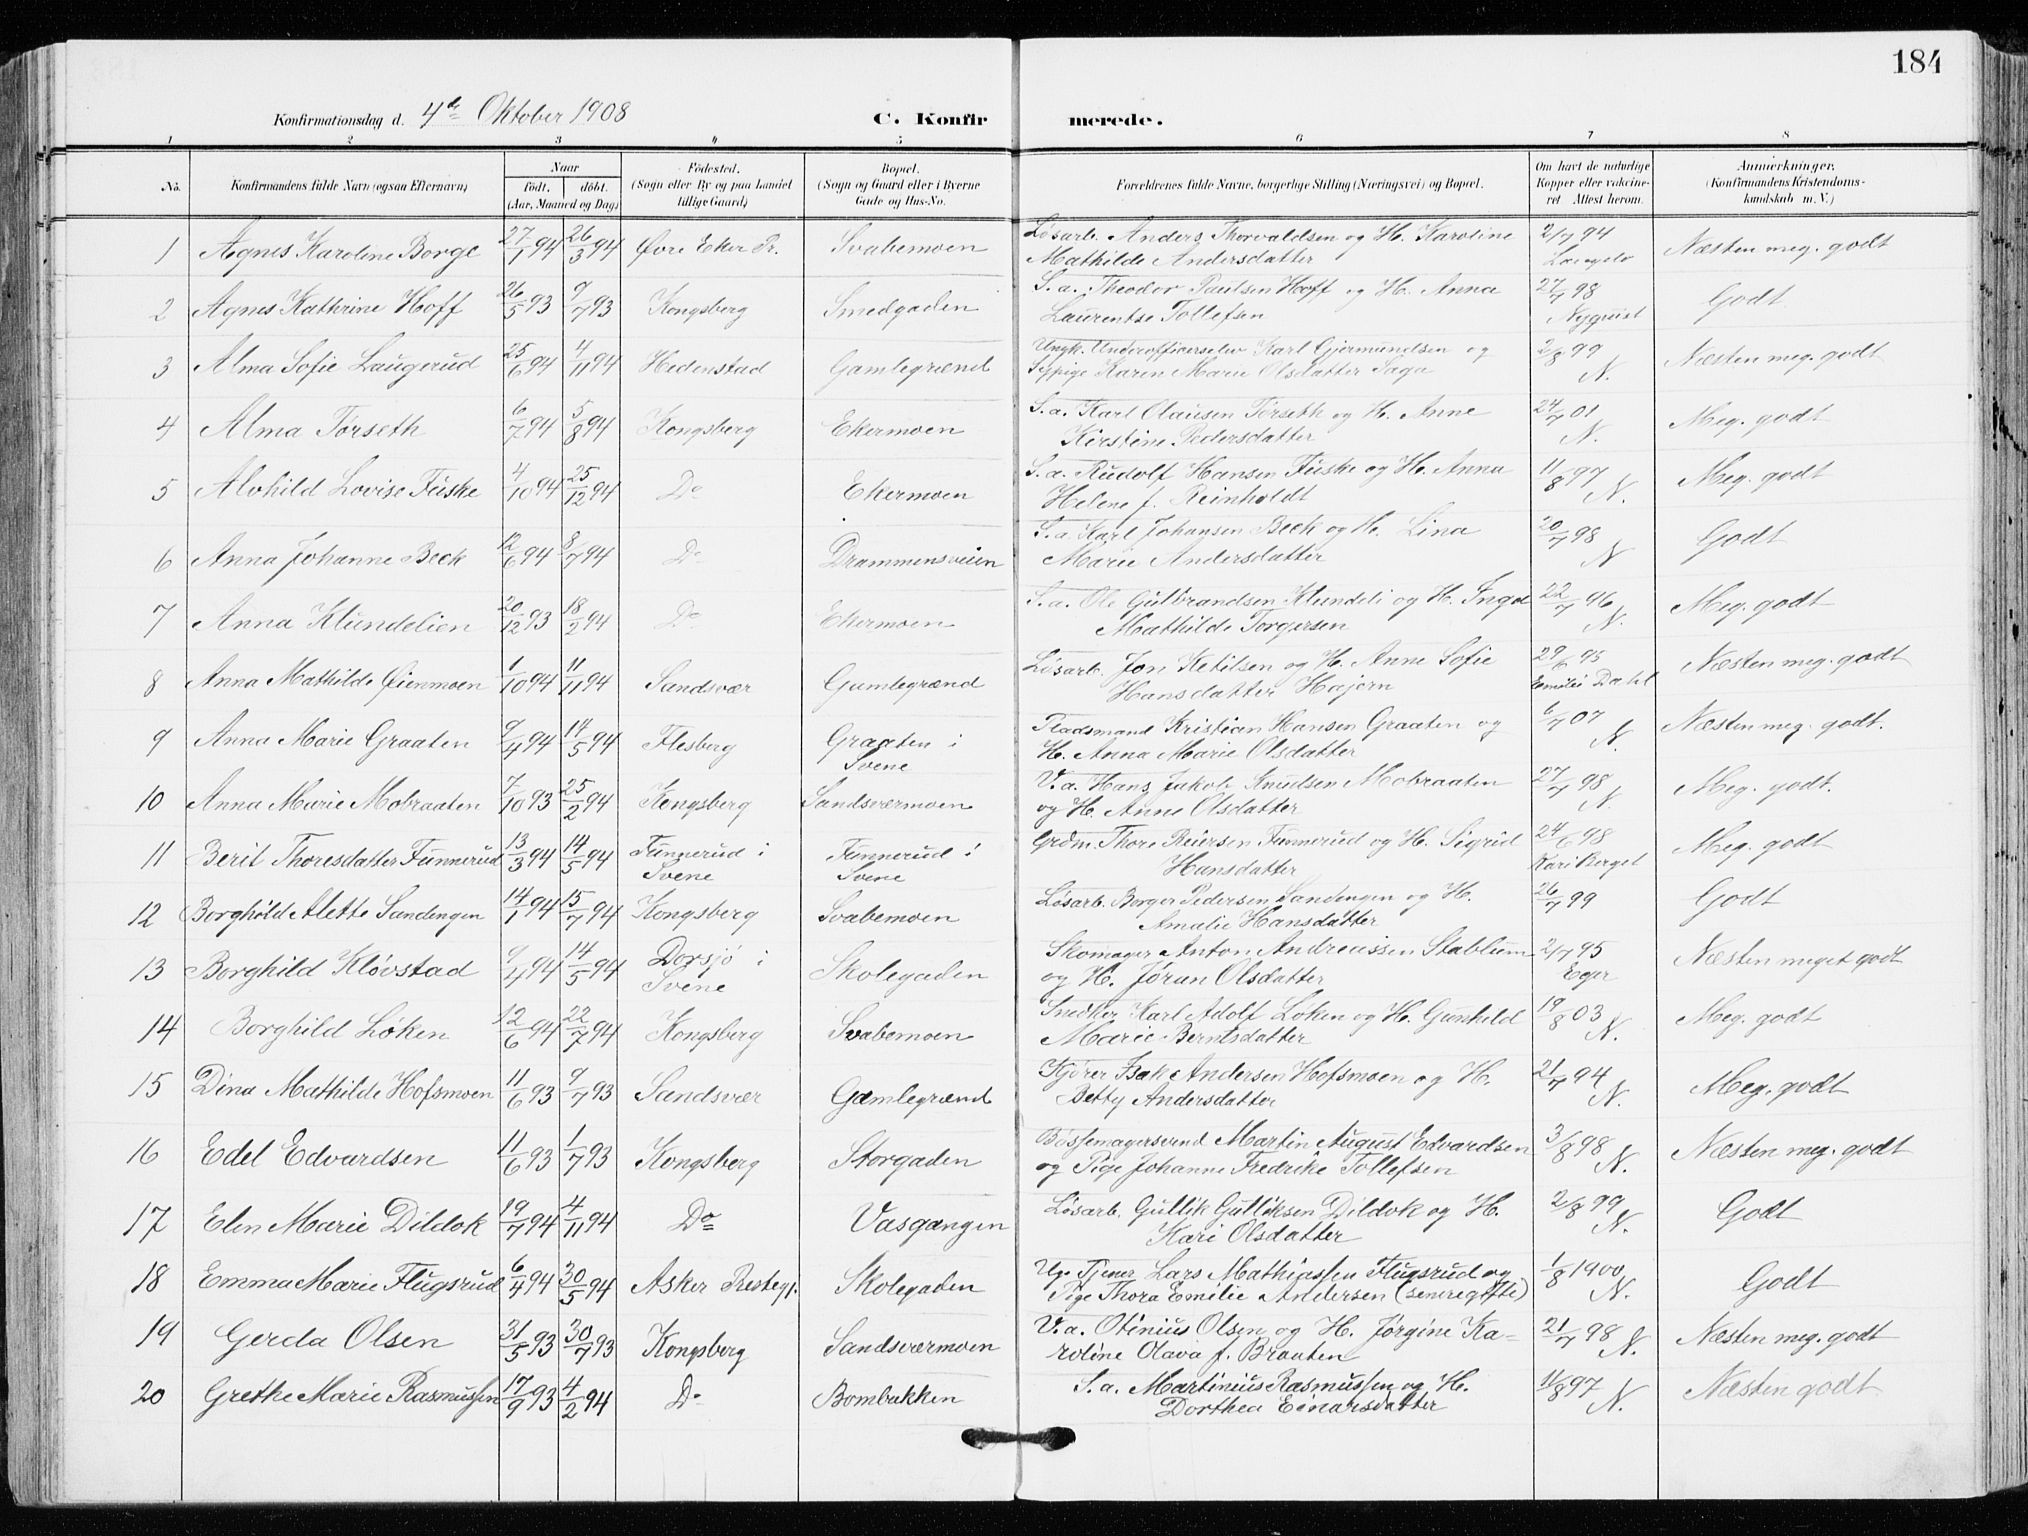 184
Konfirmationsdag d. 4de Oktober 1908 C. Konfirmerede.
1 2 3 4 5 6 7 8
No. Konfirmandens fulde Navn (ogsaa Efternavn) Naar født. døbt. (Aar, Maaned og Dag) Fødested. (Sogn eller By og paa Landet tillige Gaard) Bopæl. (Sogn og Gaard eller i Byerne Gade og Hus-No. Forældrenes fulde Navne, borgerlige Stilling (Næringsvei) og Bopæl. Om havt de naturlige Kopper eller vakcineret. Attest herom. Anmærkninger. (Konfirmandens Kristendomskundskab m. V.)
1 Agnes Karoline Borge 27/1 94 26/3 94 Øvre Eker Pr. Svabemoen Løsarb. Anders Thorvaldsen og H. Karoline 2/7 94 Næsten meg. godt
Mathilde Andersdatter
2 Agnes Kathrine Hoff 26/5 93 9/7 93 Kongsberg Smedgaden S. a. Theodor Paulsen Hoff og H. Anna 27/7 98 Godt
Laurentse Tollefsen Nyquist
3 Alma Sofie Laugerud 25/6 94 4/11 94 Hedenstad Gamlegrænd Ungk. Underofficerselev Karl Gjermundsen og 2/8 99 Næsten meg. godt
Karen Marie Olsdatter Saga N.
4 Alma Tørseth 6/7 94 5/8 94 Kongsberg Ekermoen S. a. Karl Olausen Tørseth og H. Anne 24/7 01 Meg. godt
Kirstine Pedersdatter N.
5 Alvhild Lovise Fuske 4/10 94 25/12 94 Do Ekermoen S. a. Rudolf Hansen Fuske og H. Anna 11/8 97 Meg. godt
Helene f. Reinholdt N.
6 Anna Johanne Beck 12/6 94 8/7 94 Do Drammensveien S. a. Karl Johansen Beck og H. Lina 20/7 98 Godt
Marie Andersdatter N
7 Anna Klundelien 20/12 93 18/2 94 Do Ekermoen S. a. Ole Gulbrandsen Klundeli og H. Inga 22/7 96 Meg. godt
Mathilde Torgersen N.
8 Anna Mathilde Øienmoen 1/10 94 11/11 94 Sandsvær Gamlegrænd Løsarb. Jon Ketilsen og H. Anne Sofie 29/6 95 Næsten meg. godt
Hansdatter Hajern Emilie Dahl
9 Anna Marie Graaten 9/4 94 14/5 94 Flesberg Graaten i Pladsmand Kristian Hansen Graaten og 6/7 07 Næsten meg. godt.
Svene H. Anna Marie Olsdatter N.
10 Anna Marie Mobraaten 7/10 93 25/2 94 Kongsberg Sandsværmoen V. a. Hans Jakob Knudsen Mobraaten 27/7 98 Meg. godt.
og H. Anne Olsdatter N.
11 Berit Thoresdatter Funnerud 13/3 94 14/5 94 Funnerud i Funnerud i Grdm. Thore Reiersen Funnerud og H. Sigrid 24/6 98 Meg. godt
Svene Svene Hansdatter Kari Berget
12 Borghild Alette Sandengen 14/1 94 15/7 94 Kongsberg Svabemoen Løsarb. Borger Pedersen Sandengen og H. 26/7 99 Godt
Amalie Hansdatter
13 Borghild Kløvstad 9/4 94 14/5 94 Dorsjø i Skolegaden Skomager Anton Andreassen Stablum 2/7 95 Næsten meget godt
Svene og H. Jøran Olsdatter Eger
14 Borghild Løken 12/6 94 22/7 94 Kongsberg Svabemoen Snedker Karl Adolf Løken og H. Gunhild 19/8 03 Meg. godt
Marie Berntsdatter N.
15 Dina Mathilde Hofsmoen 11/6 93 9/7 93 Sandsvær Gamlegrænd Kjører Isak Andersen Hofsmoen og H. 21/7 94 Meg. godt
Betty Andersdatter N.
16 Edel Edvardsen 11/6 93 1/7 93 Kongsberg Storgaden Bøssemagersvend Martin August Edvardsen 3/8 98 Næsten meg. godt
og Pige Johanne Fredrike Tollefsen N.
17 Elen Marie Dildok 19/7 94 4/11 94 Do Vasgangen Løsarb. Gullik Gulliksen Dildok og H. 2/8 99 Godt
Kari Olsdatter N.
18 Emma Marie Flugsrud 6/4 94 30/5 94 Asker Prestegj. Skolegaden Ug. Tjener Lars Mathiassen Flugsrud og 1/8 1900 Godt
Pige Thora Emilie Andersen (senere gifte) N.
19 Gerda Olsen 31/5 93 30/7 93 Kongsberg Sandsværmoen V. a. Otinius Olsen og H. Jørgine Ka- 21/7 98 N. Næsten meg. godt
roline Olava f. Braaten
20 Grethe Marie Rasmussen 17/9 93 4/2 94 Do Bombakken S. a. Martinius Rasmussen og H. 11/8 97 Næsten godt
Dorthea Einarsdatter N.